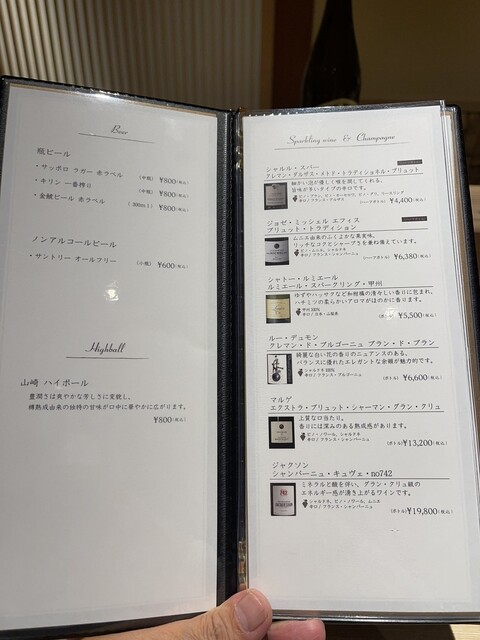 Beer
瓶ビール
・サッポロ ラガー 赤ラベル (中瓶) ¥800(税込)
・キリン 一番搾り (中瓶) ¥800(税込)
・金鯱ビール 赤ラベル ¥800(税込)
ノンアルコールビール
・サントリー オールフリー (小瓶) ¥600(税込)
Highball
山崎 ハイボール
樽熟成由来の独特の甘味が口中に華やかに広がります。
¥800(税込)
Sparkling wine & Champagne
シャルル・スパー
クレマン・ダルザス・メトド・トラディショネル・ブリュット
細かい泡が優しく喉を潤してくれる。
旨味が多いタイプの辛口です。
辛口 / フランス・アルザス
(ハーフボトル) ¥4,400(税込)
ジョゼ・ミッシェル エフィス
ブリュット・トラディション
ムニエ由来のふくよかな果実味。
リッチなコクとシャープさを兼ね備えています。
ピノ・ムニエ、シャルドネ
辛口 / フランス・シャンパーニュ
(ハーフボトル) ¥6,380(税込)
シャトー・ルミエール
ルミエール・スパークリング・甲州
ゆずやハッサクなど和柑橘の清々しい香りに包まれ、
ハチミツの柔らかいアロマがほのかに香ります。
甲州 100%
辛口 / 日本・山梨県
(ボトル) ¥5,500(税込)
ルー・デュモン
クレマン・ド・ブルゴーニュ ブラン・ド・ブラン
綺麗な白い花の香りのニュアンスのある、
バランスに優れたエレガントな余韻が魅力的です。
シャルドネ 100%
辛口 / フランス・ブルゴーニュ
(ボトル) ¥6,600(税込)
マルゲ
エクストラ・ブリュット・シャーマン・グラン・クリュ
上質な口当たり。
香りには深みのある熟成感があります。
ピノ・ノワール、シャルドネ
辛口 / フランス・シャンパーニュ
(ボトル) ¥13,200(税込)
ジャクソン
シャンパーニュ・キュヴェ・no742
ミネラルと酸を伴い、グラン・クリュ級の
エネルギー感が湧き上がるワインです。
シャルドネ、ピノ・ノワール、ムニエ
辛口 / フランス・シャンパーニュ
(ボトル) ¥19,800(税込)